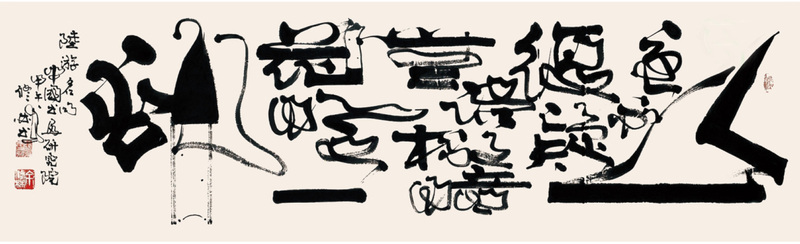 山重水複疑無路柳暗花明又一村
陸游名句
中國書畫研究院
甲午